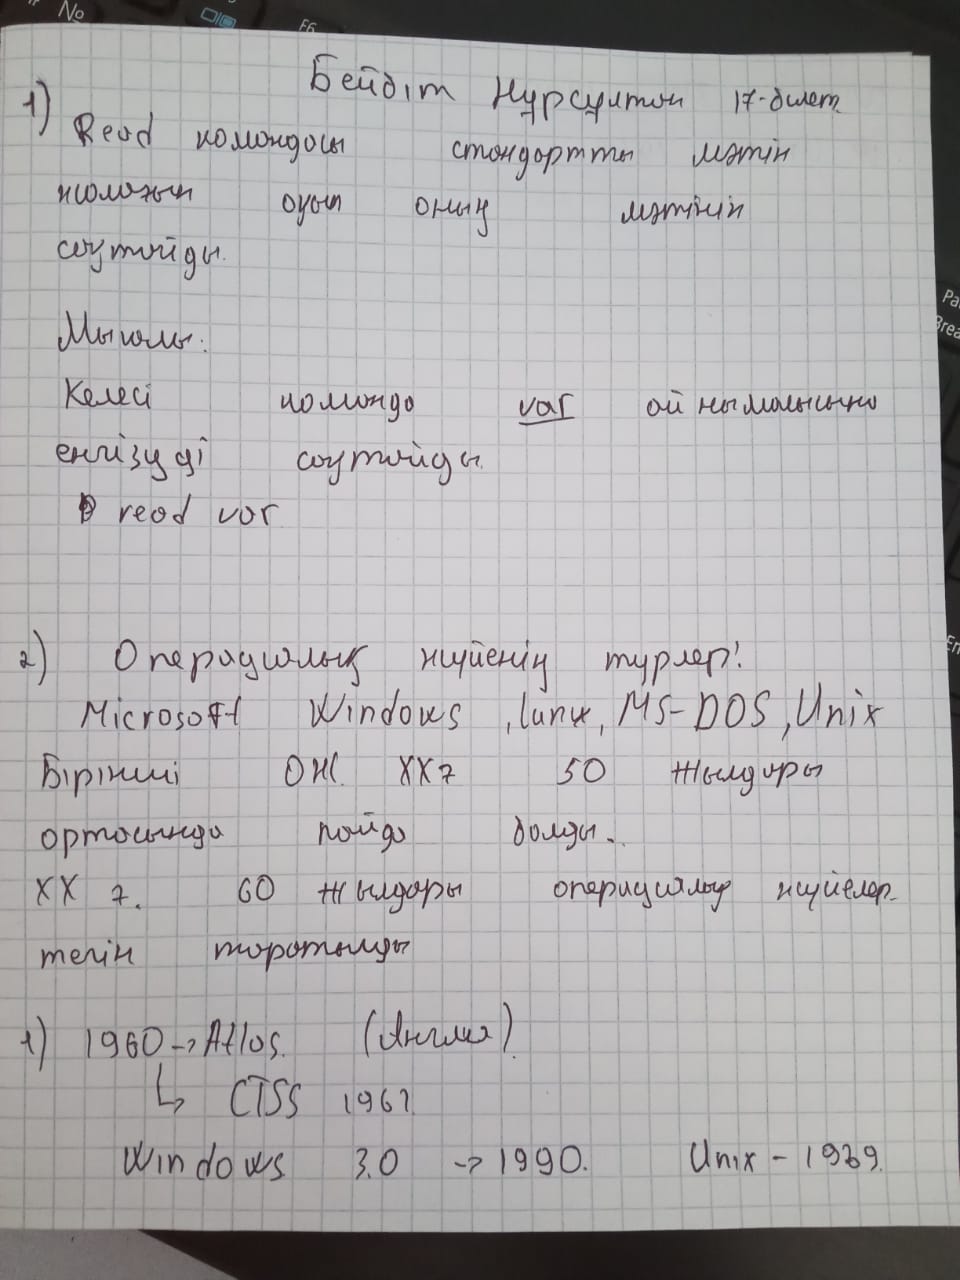 Бейбіт Нұрсұлтан 17-билет
1) Read командасы стандартты мәтін
жолағын оқып оның мәтінін
сақтайды.
Мысалы:
Келесі команда var айнымалысына
енгізуді сақтайды.
read var
2) Операциялық жүйенің түрлері:
Microsoft Windows, lunix, MS-DOS, Unix
Бірінші ОЖ XX ғ 50 жылдары
ортасында пайда болды.
XX ғ. 60 жылдары операциялық жүйелер
тегін таратылды
1) 1960 -> Atlas. (Англия).
↳ CTSS 1961
Windows 3.0 -> 1990. Unix - 1969.
No
F6
Break